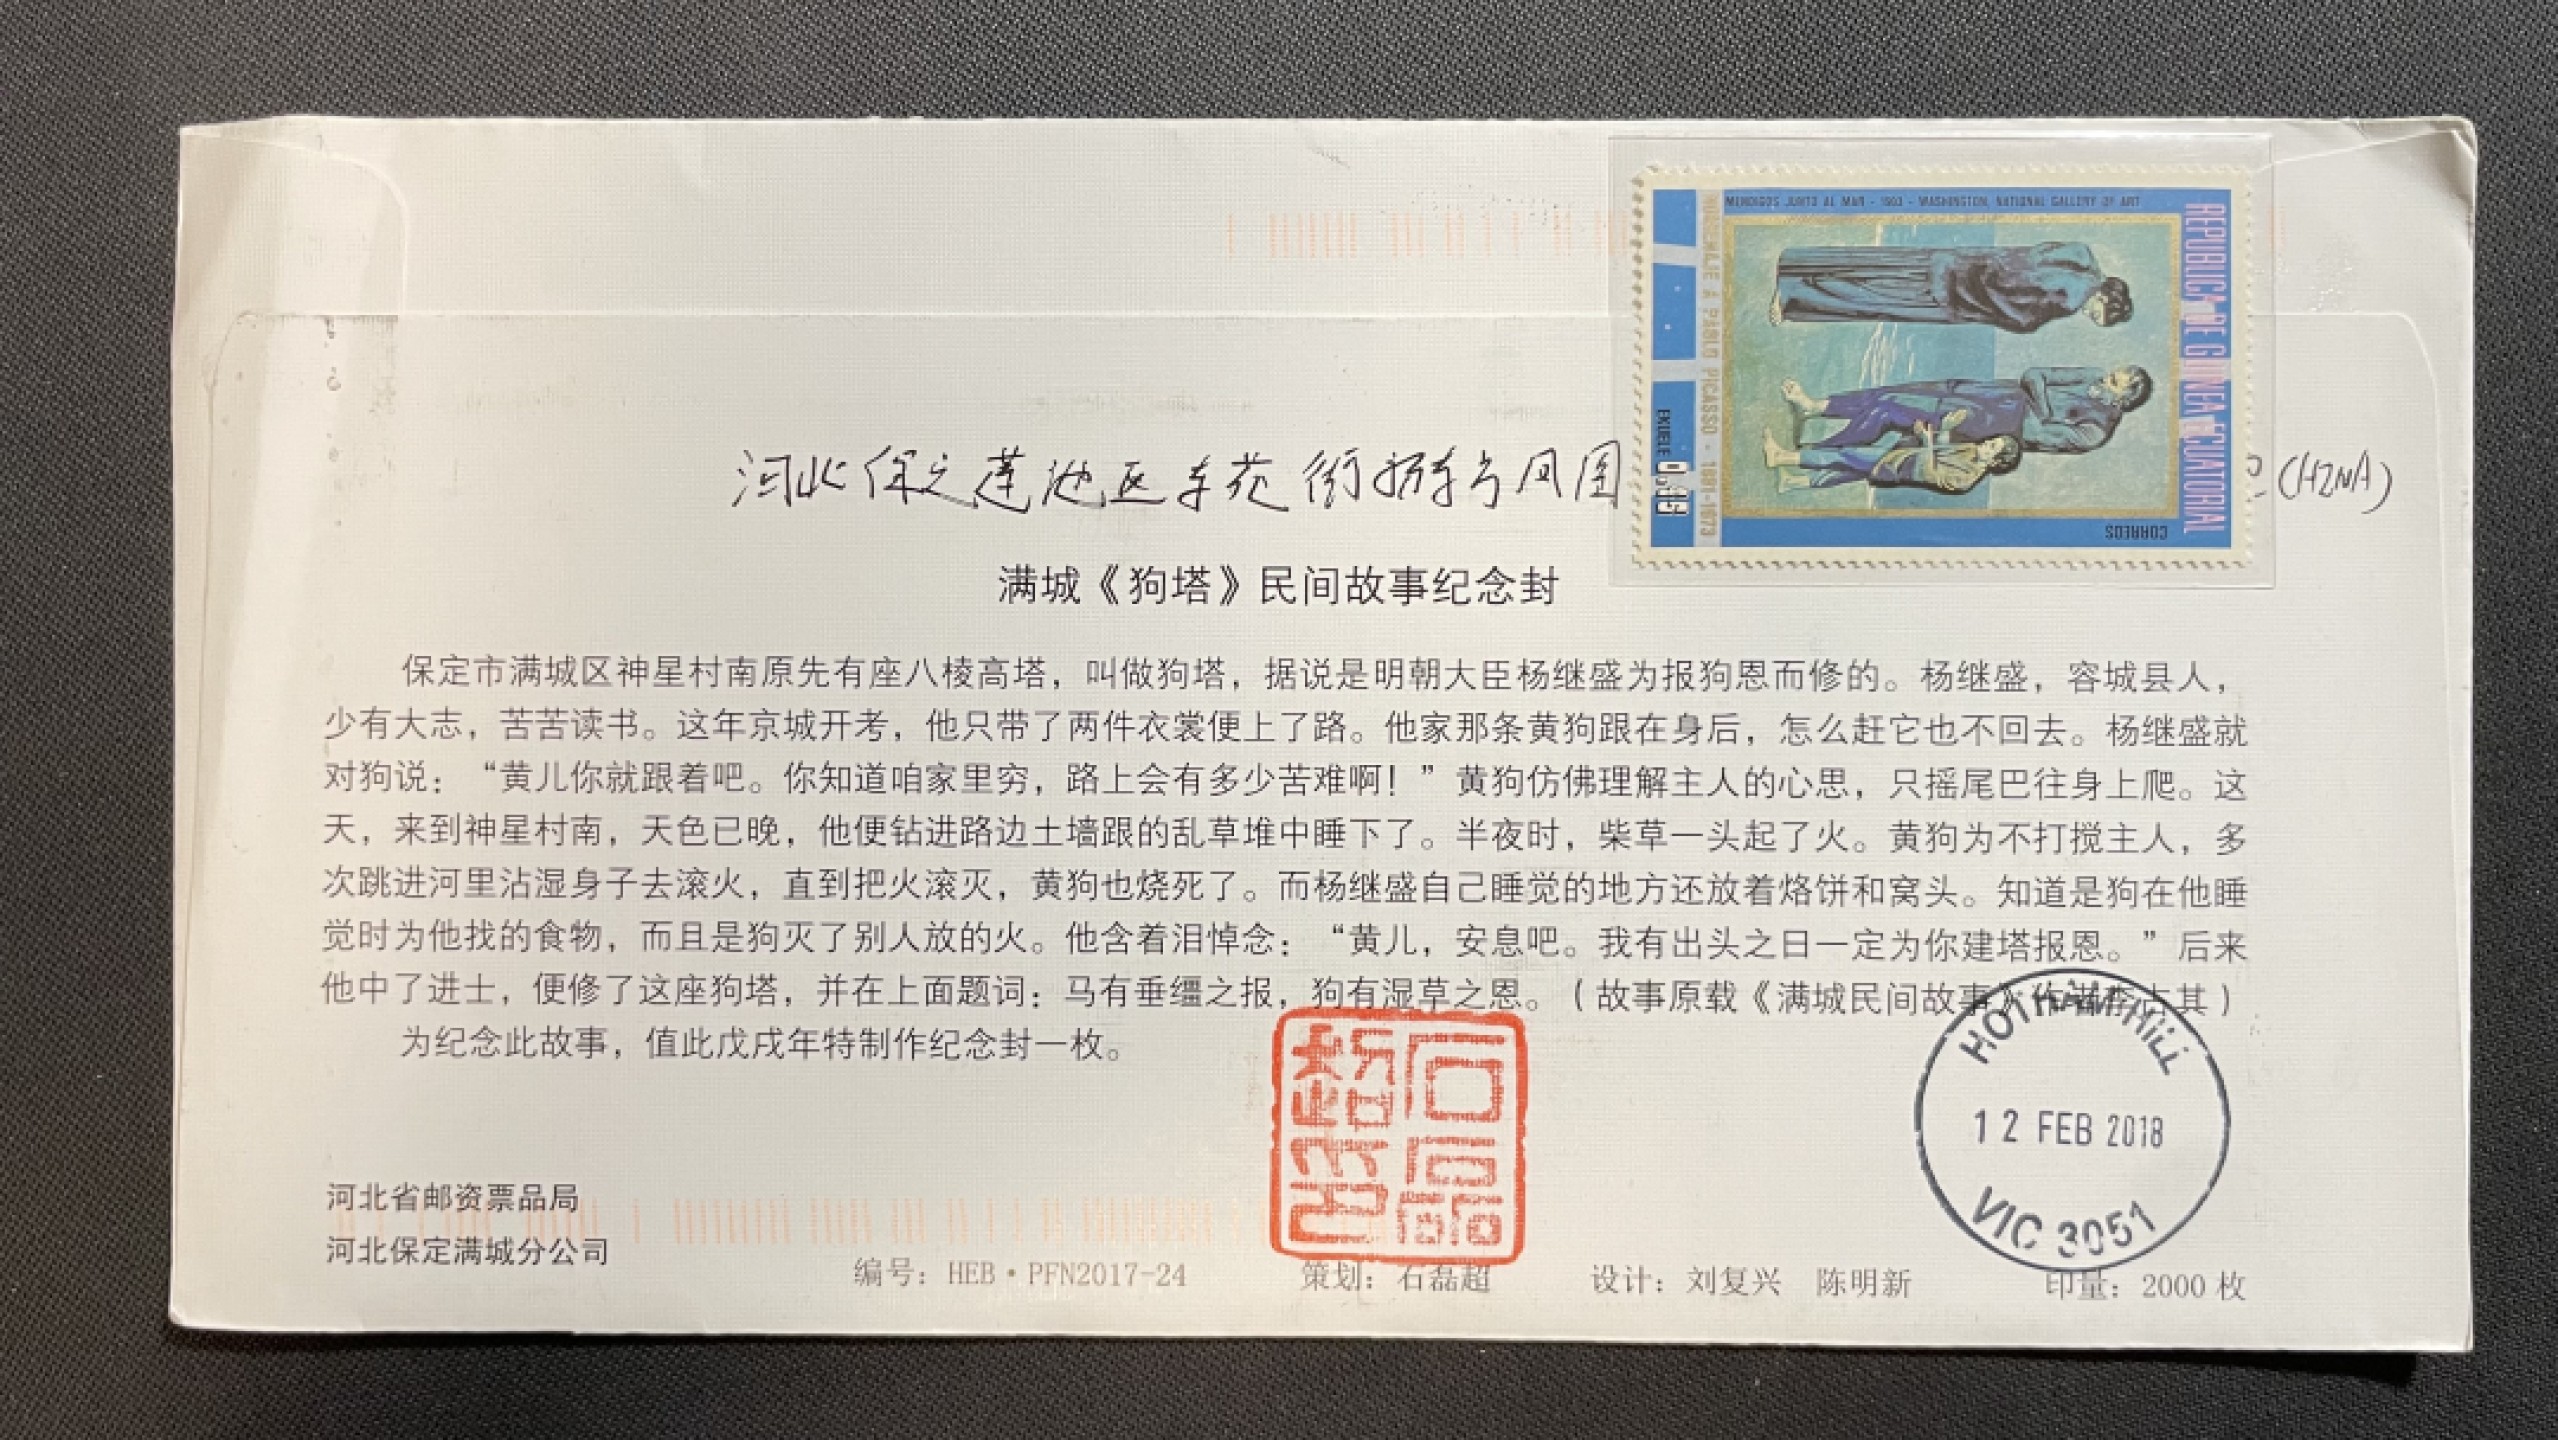 MENDIGOS JUNTO AL MAR - 1903 - WASHINGTON, NATIONAL GALLERY OF ART
REPUBLICA DE GUINEA ECUATORIAL
HOMENAJE A PABLO PICASSO - 1881-1973
EKUELE
CORREOS
河北保定莲池区东苑街
满城《狗塔》民间故事纪念封
保定市满城区神星村南原先有座八棱高塔，叫做狗塔，据说是明朝大臣杨继盛为报狗恩而修的。杨继盛，容城县人，
少有大志，苦苦读书。这年京城开考，他只带了两件衣裳便上了路。他家那条黄狗跟在身后，怎么赶它也不回去。杨继盛就
对狗说：“黄儿你就跟着吧。你知道咱家里穷，路上会有多少苦难啊！”黄狗仿佛理解主人的心思，只摇尾巴往身上爬。这
天，来到神星村南，天色已晚，他便钻进路边土墙跟的乱草堆中睡下了。半夜时，柴草一头起了火。黄狗为不打搅主人，多
次跳进河里沾湿身子去滚火，直到把火滚灭，黄狗也烧死了。而杨继盛自己睡觉的地方还放着烙饼和窝头。知道是狗在他睡
觉时为他找的食物，而且是狗灭了别人放的火。他含着泪悼念：“黄儿，安息吧。我有出头之日一定为你建塔报恩。”后来
他中了进士，便修了这座狗塔，并在上面题词：马有垂缰之报，狗有湿草之恩。（故事原载《满城民间故事》
为纪念此故事，值此戊戌年特制作纪念封一枚。
HOTHAM HILL
12 FEB 2018
VIC 3051
河北省邮资票品局
河北保定满城分公司
编号：HEB·PFN2017-24 策划：石磊超 设计：刘复兴 陈明新 印量：2000 枚